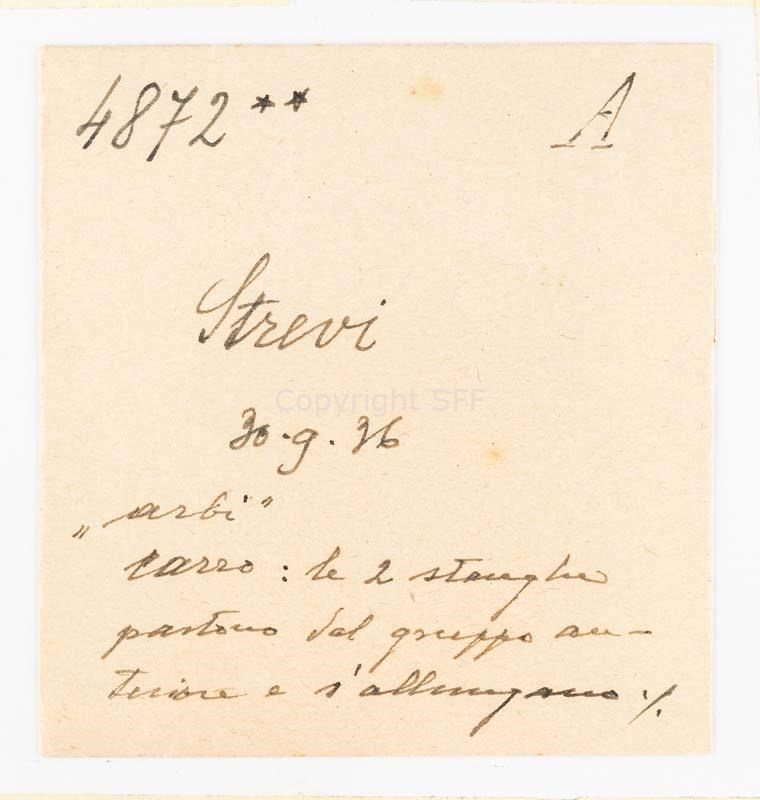 4872** A
Strevi
Copyright SFF
30.9.36
„arbi"
carro: le 2 stanghe
partono dal gruppo an-
teriore e s'allungano ./.